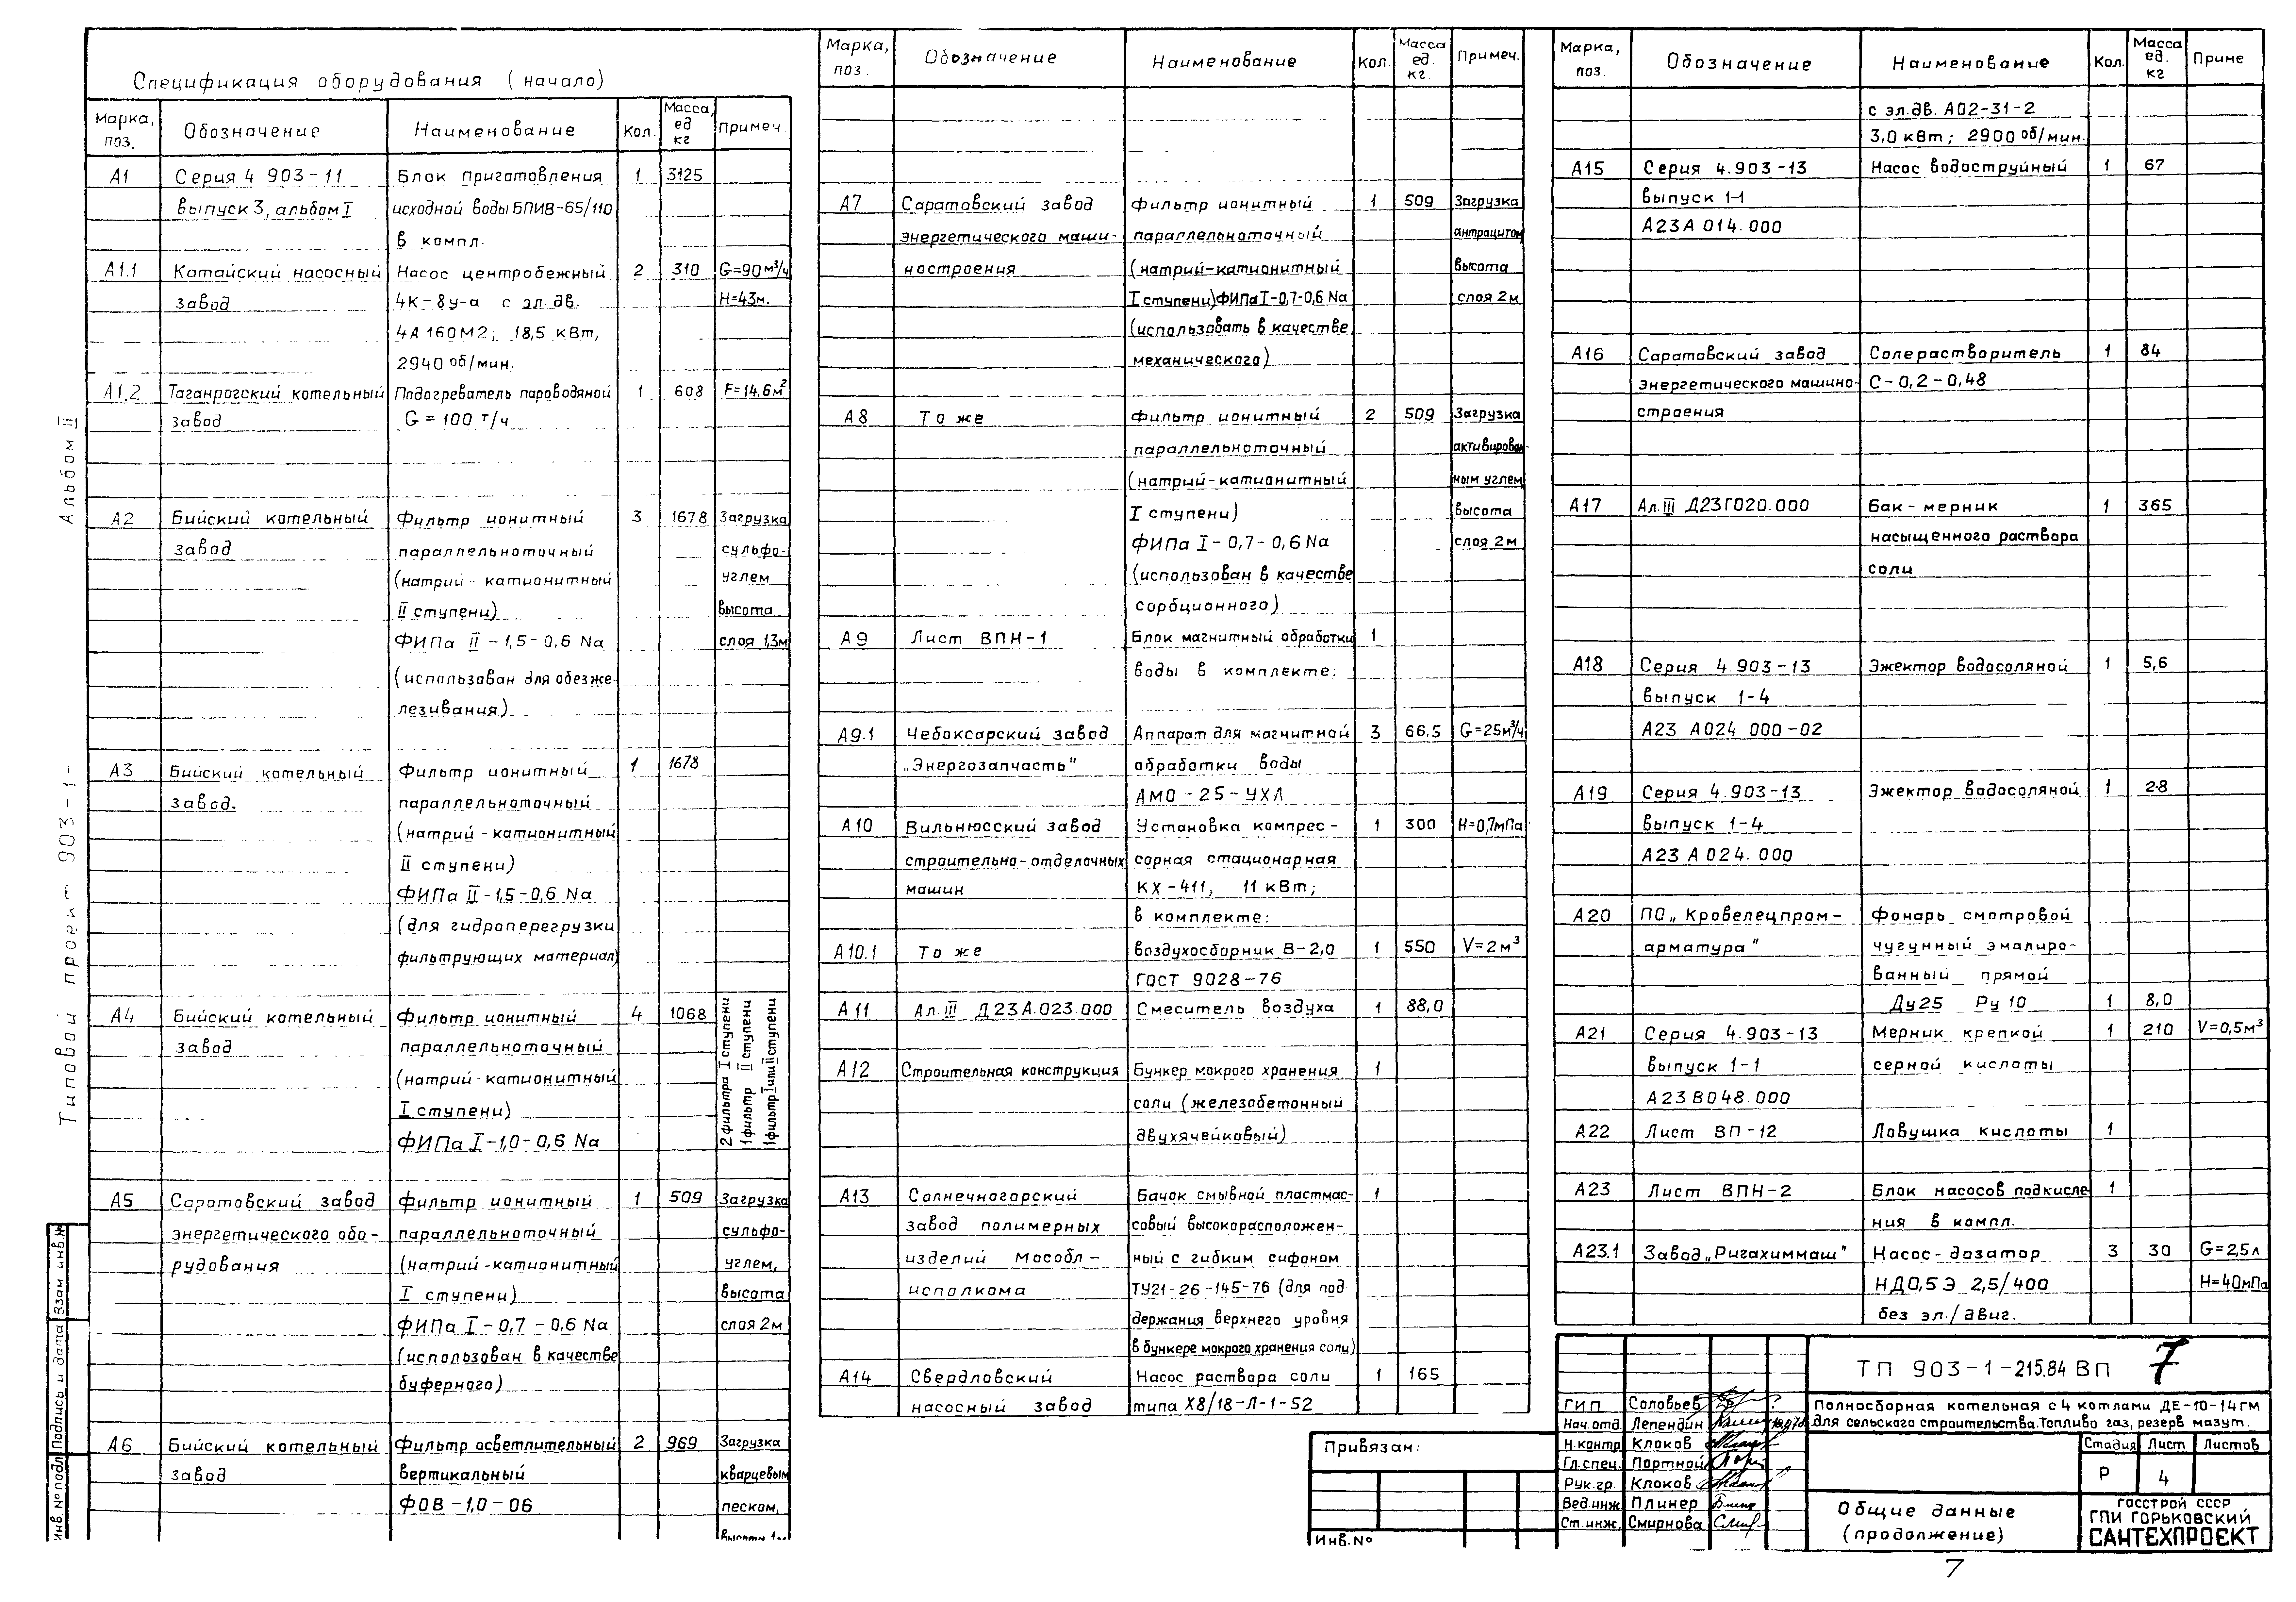 Альбом II
Типовой проект 903-1-
Взам инв.№
Подпись и дата
Инв.№подл
Спецификация оборудования (начало)
Марка, поз. Обозначение Наименование Кол. Масса, ед кг Примеч.
А1 Серия 4 903-11 Блок приготовления 1 3125
выпуск 3, альбом I исходной воды БПИВ-65/110
в компл.
А1.1 Катайский насосный Насос центробежный 2 310 G=90м³/ч
завод 4К-8у-а с эл. дв. Н=43м.
4А160М2; 18,5 кВт,
2940 об/мин.
А1.2 Таганрогский котельный Подогреватель пароводяной 1 608 F=14,6м²
завод G = 100 т/ч
А2 Бийский котельный Фильтр ионитный 3 1678 Загрузка
завод параллельноточный сульфо-
(натрий-катионитный углем
II ступени) высота
ФИПа II-1,5-0,6 Na слоя 1,3м
(использован для обезже-
лезивания)
А3 Бийский котельный Фильтр ионитный 1 1678
завод. параллельноточный
(натрий-катионитный
II ступени)
ФИПа II-1,5-0,6 Na
(для гидроперегрузки
фильтрующих материал)
А4 Бийский котельный Фильтр ионитный 4 1068
завод параллельноточный
(натрий-катионитный
I ступени)
ФИПа I-1,0-0,6 Na
2 фильтра I ступени
1 фильтр II ступени
1 фильтр I или II ступени
А5 Саротовский завод Фильтр ионитный 1 509 Загрузка
энергетического обо- параллельноточный сульфо-
рудования (натрий-катионитный углем,
I ступени) высота
ФИПа I-0,7-0,6 Na слоя 2м
(использован в качестве
буферного)
А6 Бийский котельный Фильтр осветлительный 2 969 Загрузка
завод вертикальный кварцевым
ФОВ-1,0-06 песком,
высота 1м
Марка, поз. Обозначение Наименование Кол. Масса ед. кг. Примеч.
А7 Саратовский завод Фильтр ионитный 1 509 Загрузка
энергетического маши- параллельноточный антрацитом
ностроения (натрий-катионитный высота
I ступени) ФИПа I-0,7-0,6 Na слоя 2м
(использовать в качестве
механического)
А8 То же Фильтр ионитный 2 509 Загрузка
параллельноточный активирован-
(натрий-катионитный ным углем,
I ступени) высота
ФИПа I-0,7-0,6 Na слоя 2м
(использован в качестве
сорбционного)
А9 Лист ВПН-1 Блок магнитный обработки 1
воды в комплекте:
А9.1 Чебоксарский завод Аппарат для магнитной 3 66,5 G=25м³/ч
„Энергозапчасть" обработки воды
АМО-25-УХЛ
А10 Вильнюсский завод Установка компрес- 1 300 Н=0,7мПа
строительно-отделочных сорная стационарная
машин КХ-411, 11 кВт;
в комплекте:
А10.1 То же воздухосборник В-2,0 1 550 V=2м³
ГОСТ 9028-76
А11 Ал. III Д23А.023.000 Смеситель воздуха 1 88,0
А12 Строительная конструкция Бункер мокрого хранения 1
соли (железобетонный
двухячейковый)
А13 Солнечногорский Бачок смывной пластмас- 1
завод полимерных совый высокорасположен-
изделий Мособл- ный с гибким сифоном
исполкома ТУ21-26-145-76 (для под-
держания верхнего уровня
в бункере мокрого хранения соли)
А14 Свердловский Насос раствора соли 1 165
насосный завод типа Х8/18-Л-1-52
Марка, поз. Обозначение Наименование Кол. Масса ед. кг Приме
с эл.дв. А02-31-2
3,0 кВт; 2900 об/мин.
А15 Серия 4.903-13 Насос водоструйный 1 67
выпуск 1-1
А23А 014.000
А16 Саратовский завод Солерастворитель 1 84
энергетического машино- С-0,2-0,48
строения
А17 Ал. III Д23Г020.000 Бак-мерник 1 365
насыщенного раствора
соли
А18 Серия 4.903-13 Эжектор водосоляной 1 5,6
выпуск 1-4
А23 А024 000-02
А19 Серия 4.903-13 Эжектор водосоляной 1 2.8
выпуск 1-4
А23 А 024.000
А20 ПО „Кровелецпром- Фонарь смотровой
арматура" чугунный эмалиро-
ванный прямой
Ду25 Ру 10 1 8,0
А21 Серия 4.903-13 Мерник крепкой 1 210 V=0,5м³
выпуск 1-1 серной кислоты
А23В048.000
А22 Лист ВП-12 Ловушка кислоты 1
А23 Лист ВПН-2 Блок насосов подкисле 1
ния в компл.
А23.1 Завод „Ригахиммаш" Насос-дозатор 3 30 G=2,5л
НД0,5Э 2,5/400 Н=40мПа
без эл./двиг.
Привязан:
Инв.№
ТП 903-1-215.84 ВП 7
ГИП Соловьев
Нач.отд. Лепендин
Н.контр Клоков
Гл.спец. Портной
Рук.гр. Клоков
Вед.инж. Плинер
Ст.инж. Смирнова
Полносборная котельная с 4 котлами ДЕ-10-14ГМ
для сельского строительства. Топливо газ, резерв мазут.
Стадия Лист Листов
Р 4
Общие данные
(продолжение)
ГОССТРОЙ СССР
ГПИ ГОРЬКОВСКИЙ
САНТЕХПРОЕКТ
7